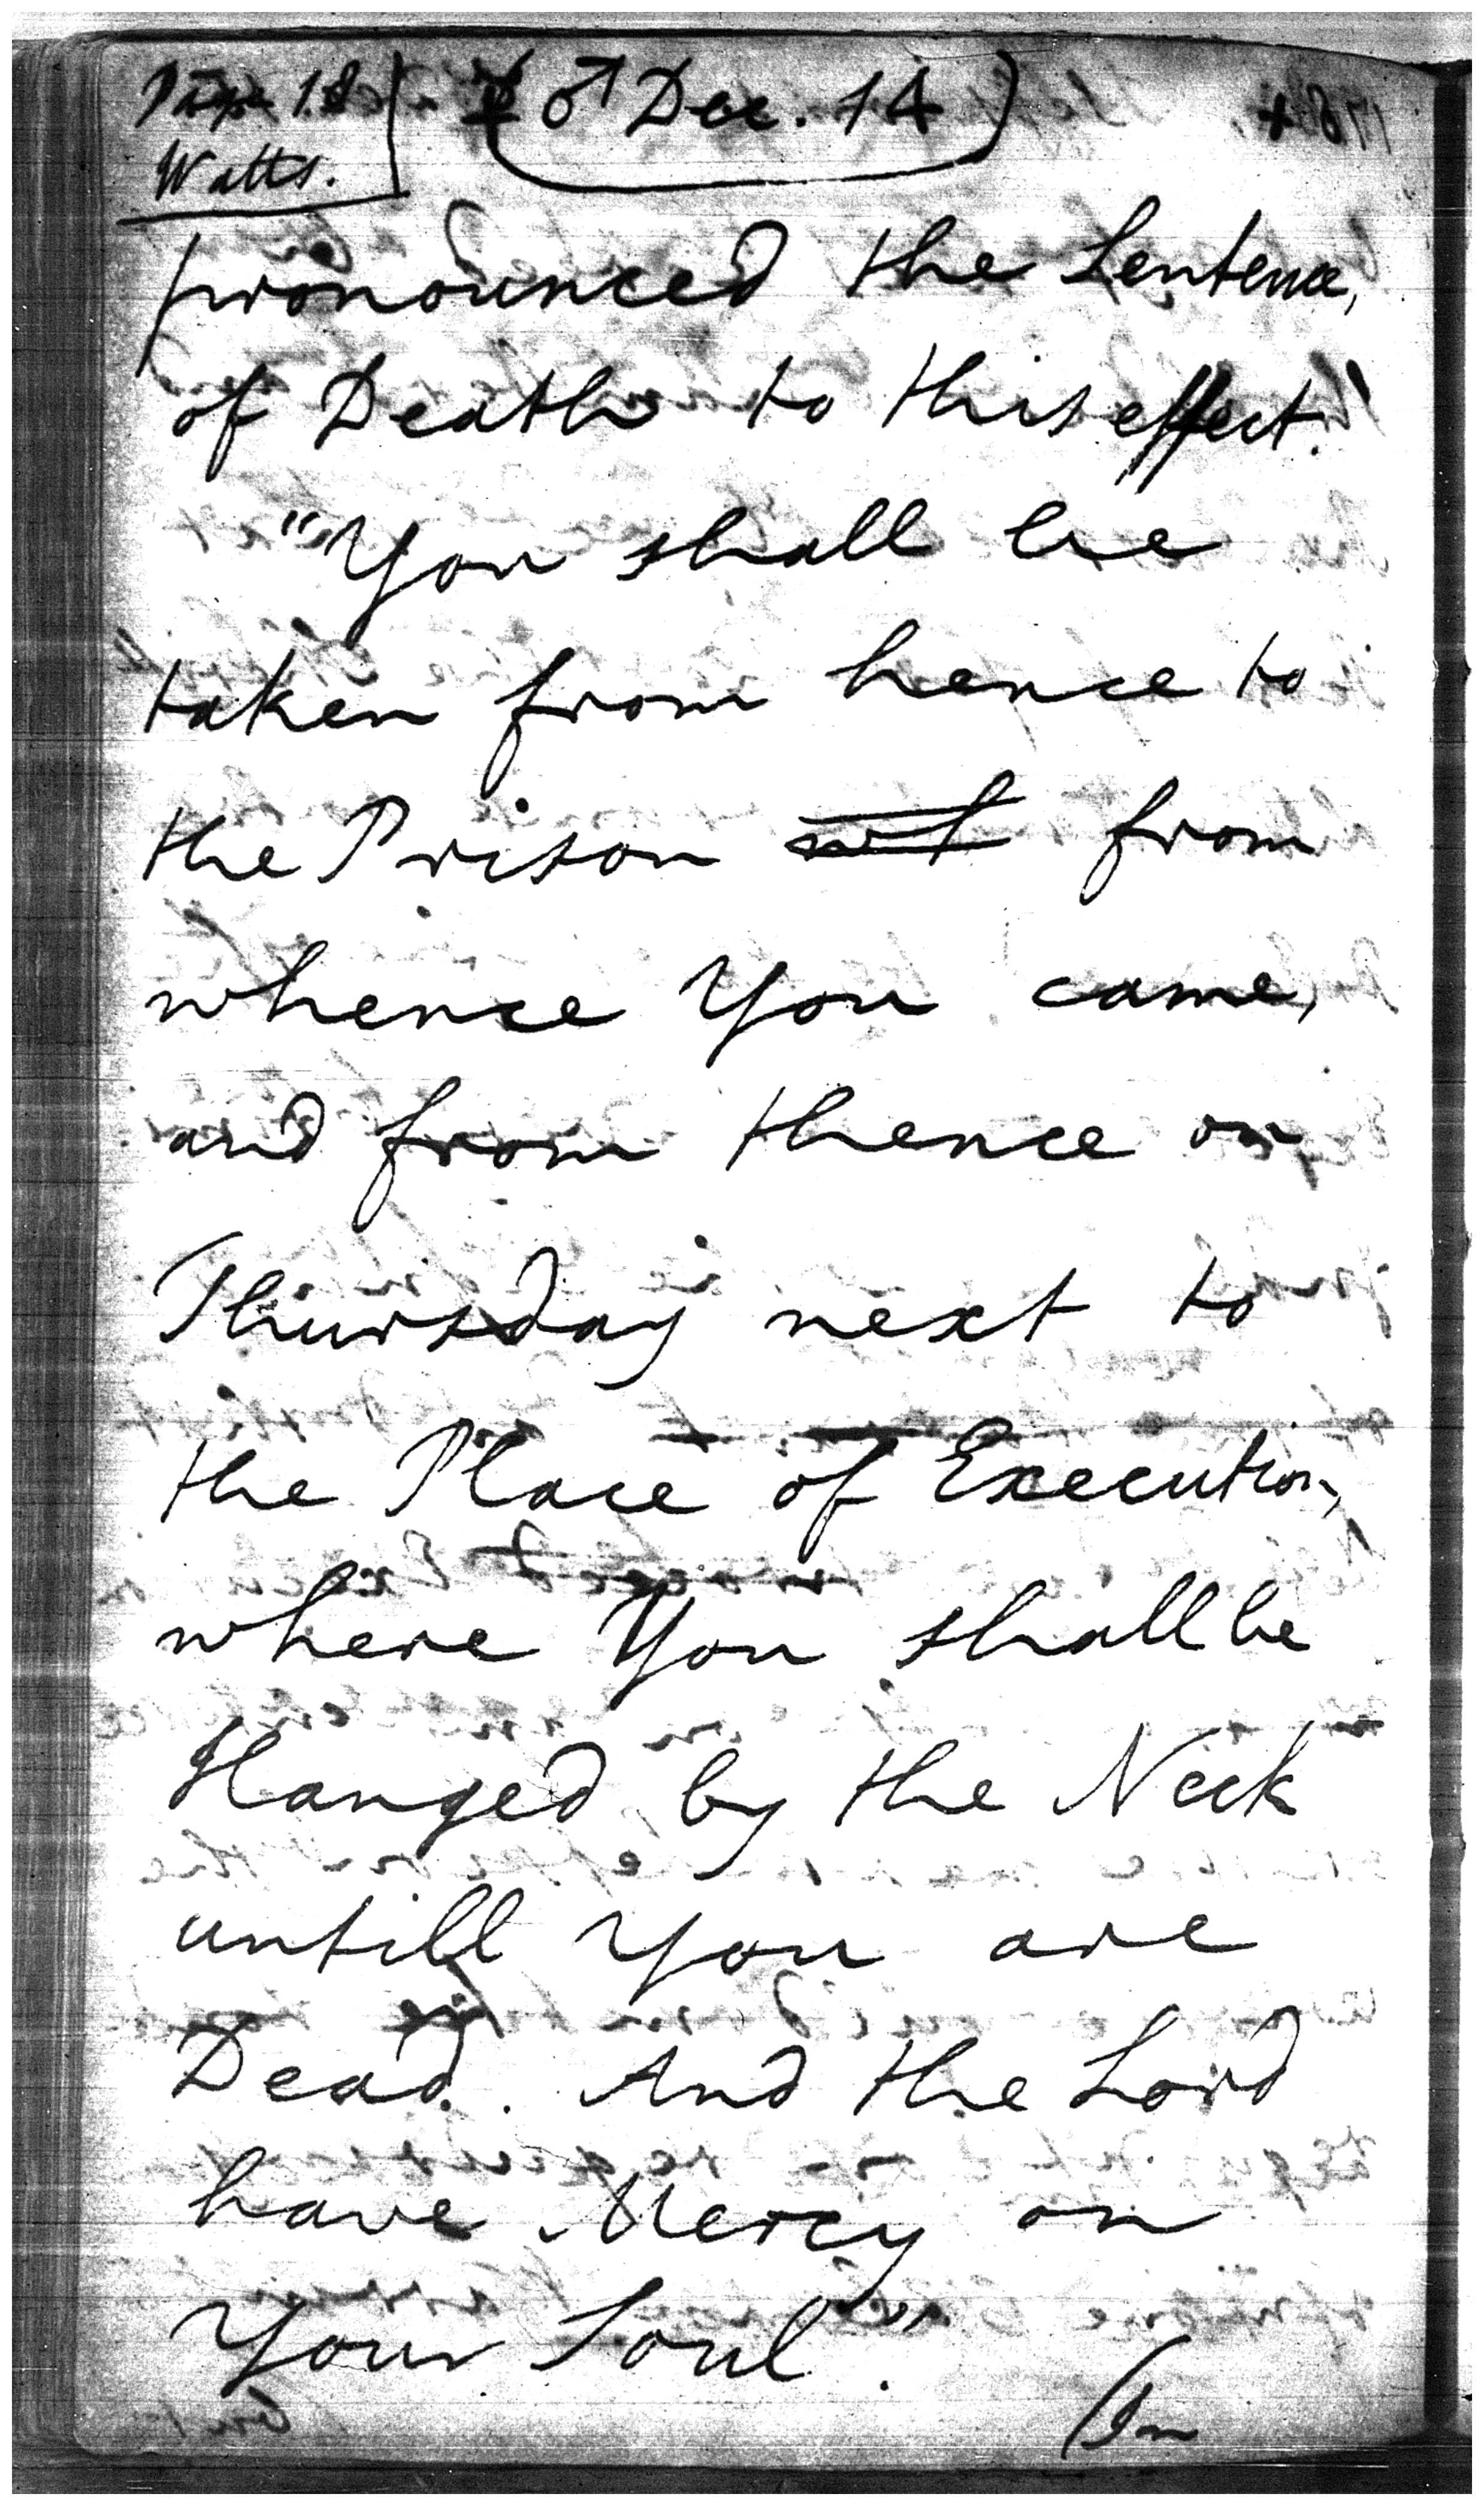 Page 18 ♂ Dec. 14
Watts.
pronounced the Sentence,
of Death to this effect."
"You shall be
taken from hence to
the Prison from
whence You came,
and from thence on
Thursday next to
the Place of Execution,
where You shall be
Hanged by the Neck
untill You are
Dead. And the Lord
have Mercy on
Your Soul".
(In